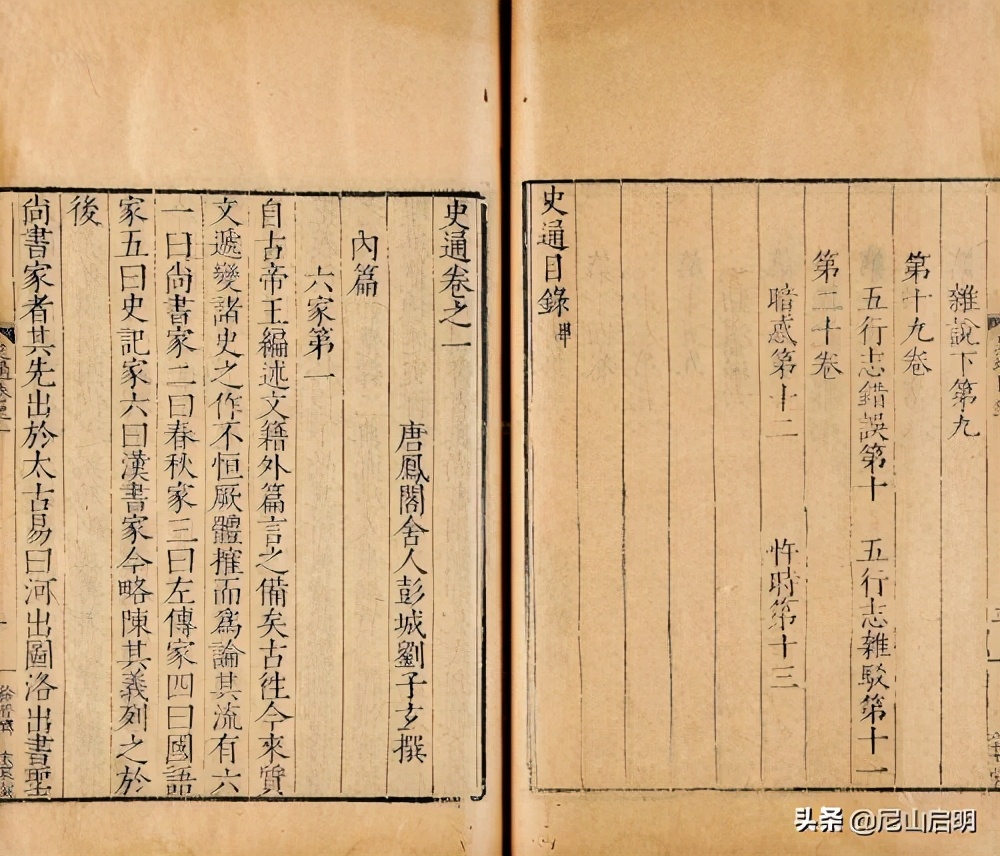 雜說下第九
第十九卷
五行志錯誤第十　五行志雜駁第十一
第二十卷
暗惑第十二　忤時第十三
史通目錄
史通卷之一
唐鳳閣舍人彭城劉子玄撰
內篇
六家第一
自古帝王編述文籍外篇言之備矣古往今來質
文遞變諸史之作不恒厥體搉而爲論其流有六
一曰尚書家二曰春秋家三曰左傳家四曰國語
家五曰史記家六曰漢書家今略陳其義列之於
後
尚書家者其先出於太古易曰河出圖洛出書聖
头条 @尼山启明